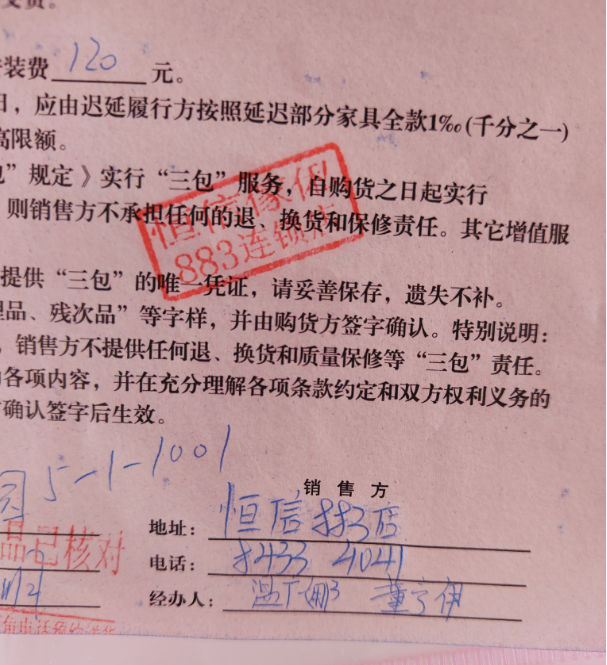 装费 120 元。
日，应由迟延履行方按照延迟部分家具全款1‰(千分之一)
高限额。
包”规定》实行“三包”服务，自购货之日起实行
则销售方不承担任何的退、换货和保修责任。其它增值服
恒信傢俬
883连锁店
提供“三包”的唯一凭证，请妥善保存，遗失不补。
理品、残次品”等字样，并由购货方签字确认。特别说明：
，销售方不提供任何退、换货和质量保修等“三包”责任。
各项内容，并在充分理解各项条款约定和双方权利义务的
确认签字后生效。
5-1-1001
销售方
地址：恒信 店
品已核对
电话：8433 4041
经办人：